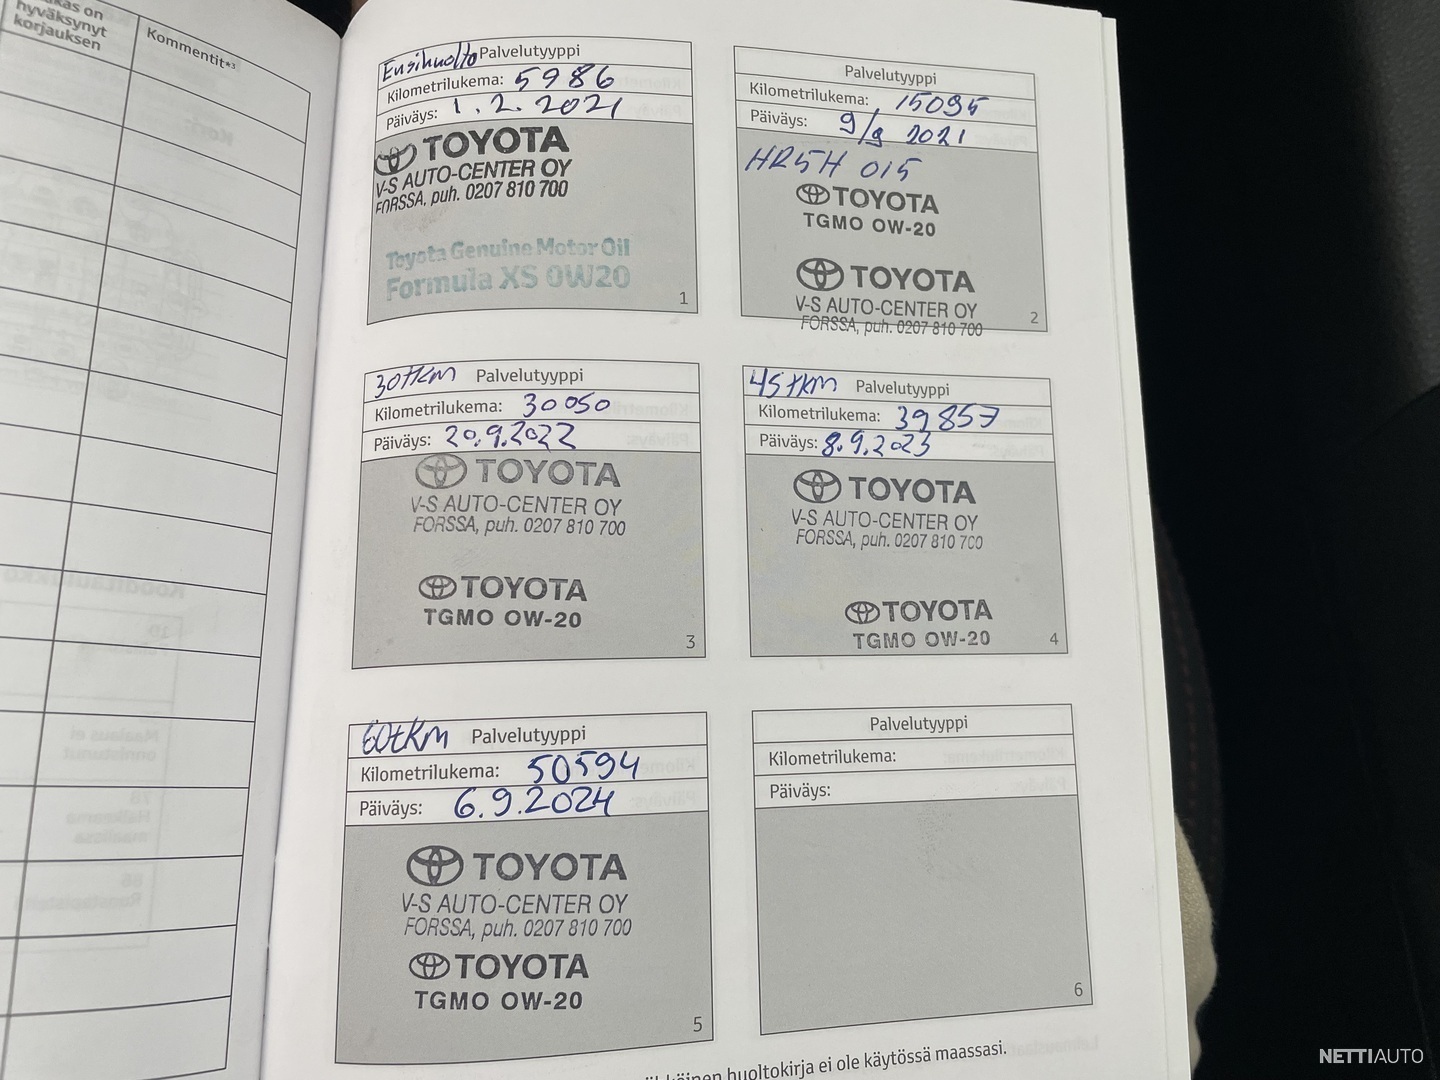 hyväksynyt
korjauksen
Kommentit*³
Ensihuolto Palvelutyyppi
Kilometrilukema: 5986
Päiväys: 1.2.2021
TOYOTA
V-S AUTO-CENTER OY
FORSSA, puh. 0207 810 700
Toyota Genuine Motor Oil
Formula XS 0W20
1
Palvelutyyppi
Kilometrilukema: 15095
Päiväys: 9/9 2021
HR5H 015
TOYOTA
TGMO 0W-20
TOYOTA
V-S AUTO-CENTER OY
FORSSA, puh. 0207 810 700
2
30tkm Palvelutyyppi
Kilometrilukema: 30050
Päiväys: 20.9.2022
TOYOTA
V-S AUTO-CENTER OY
FORSSA, puh. 0207 810 700
TOYOTA
TGMO 0W-20
3
45tkm Palvelutyyppi
Kilometrilukema: 39857
Päiväys: 8.9.2023
TOYOTA
V-S AUTO-CENTER OY
FORSSA, puh. 0207 810 700
TOYOTA
TGMO 0W-20
4
60tkm Palvelutyyppi
Kilometrilukema: 50594
Päiväys: 6.9.2024
TOYOTA
V-S AUTO-CENTER OY
FORSSA, puh. 0207 810 700
TOYOTA
TGMO 0W-20
5
Palvelutyyppi
Kilometrilukema:
Päiväys:
6
huoltokirja ei ole käytössä maassasi.
NETTIAUTO